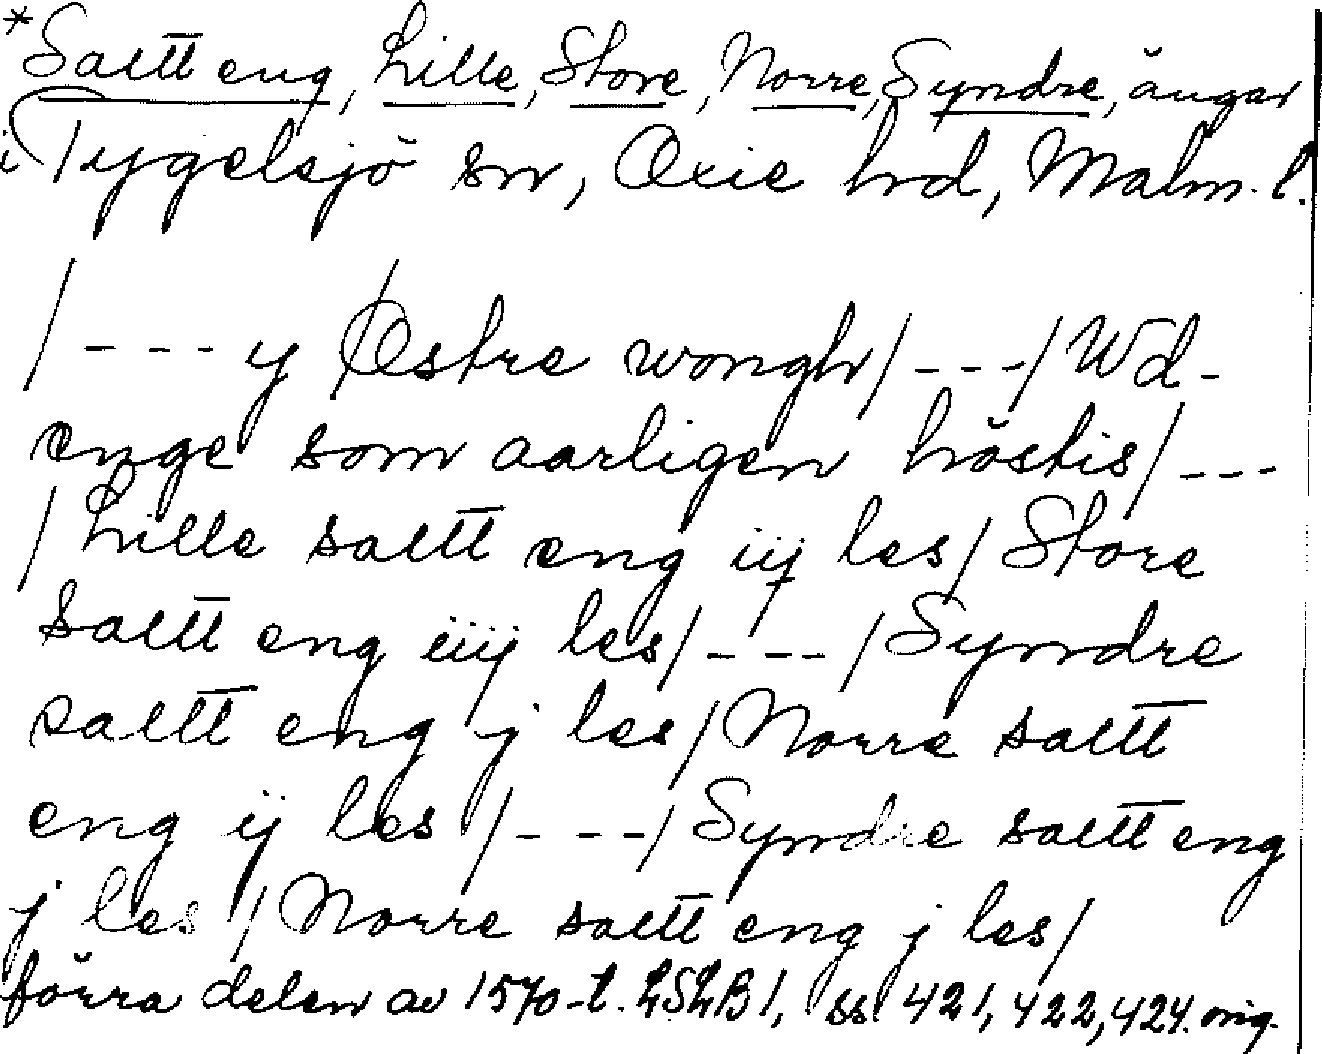 *Saltt eng, Lille, Store, Norre, Syndre, ängar
i Tygelsjö sn, Oxie hd, Malm. l.
/--- y Østre wongh/---/Wd-
enge som aarligen höstis/---
/Lille saltt eng iij les/Store
saltt eng iiij les/---/Syndre
saltt eng j les/Norre saltt
eng ij les/---/Syndre saltt eng
j les/Norre saltt eng j les/
förra delen av 1570-t. LSLB1, ss 421, 422, 424. orig.